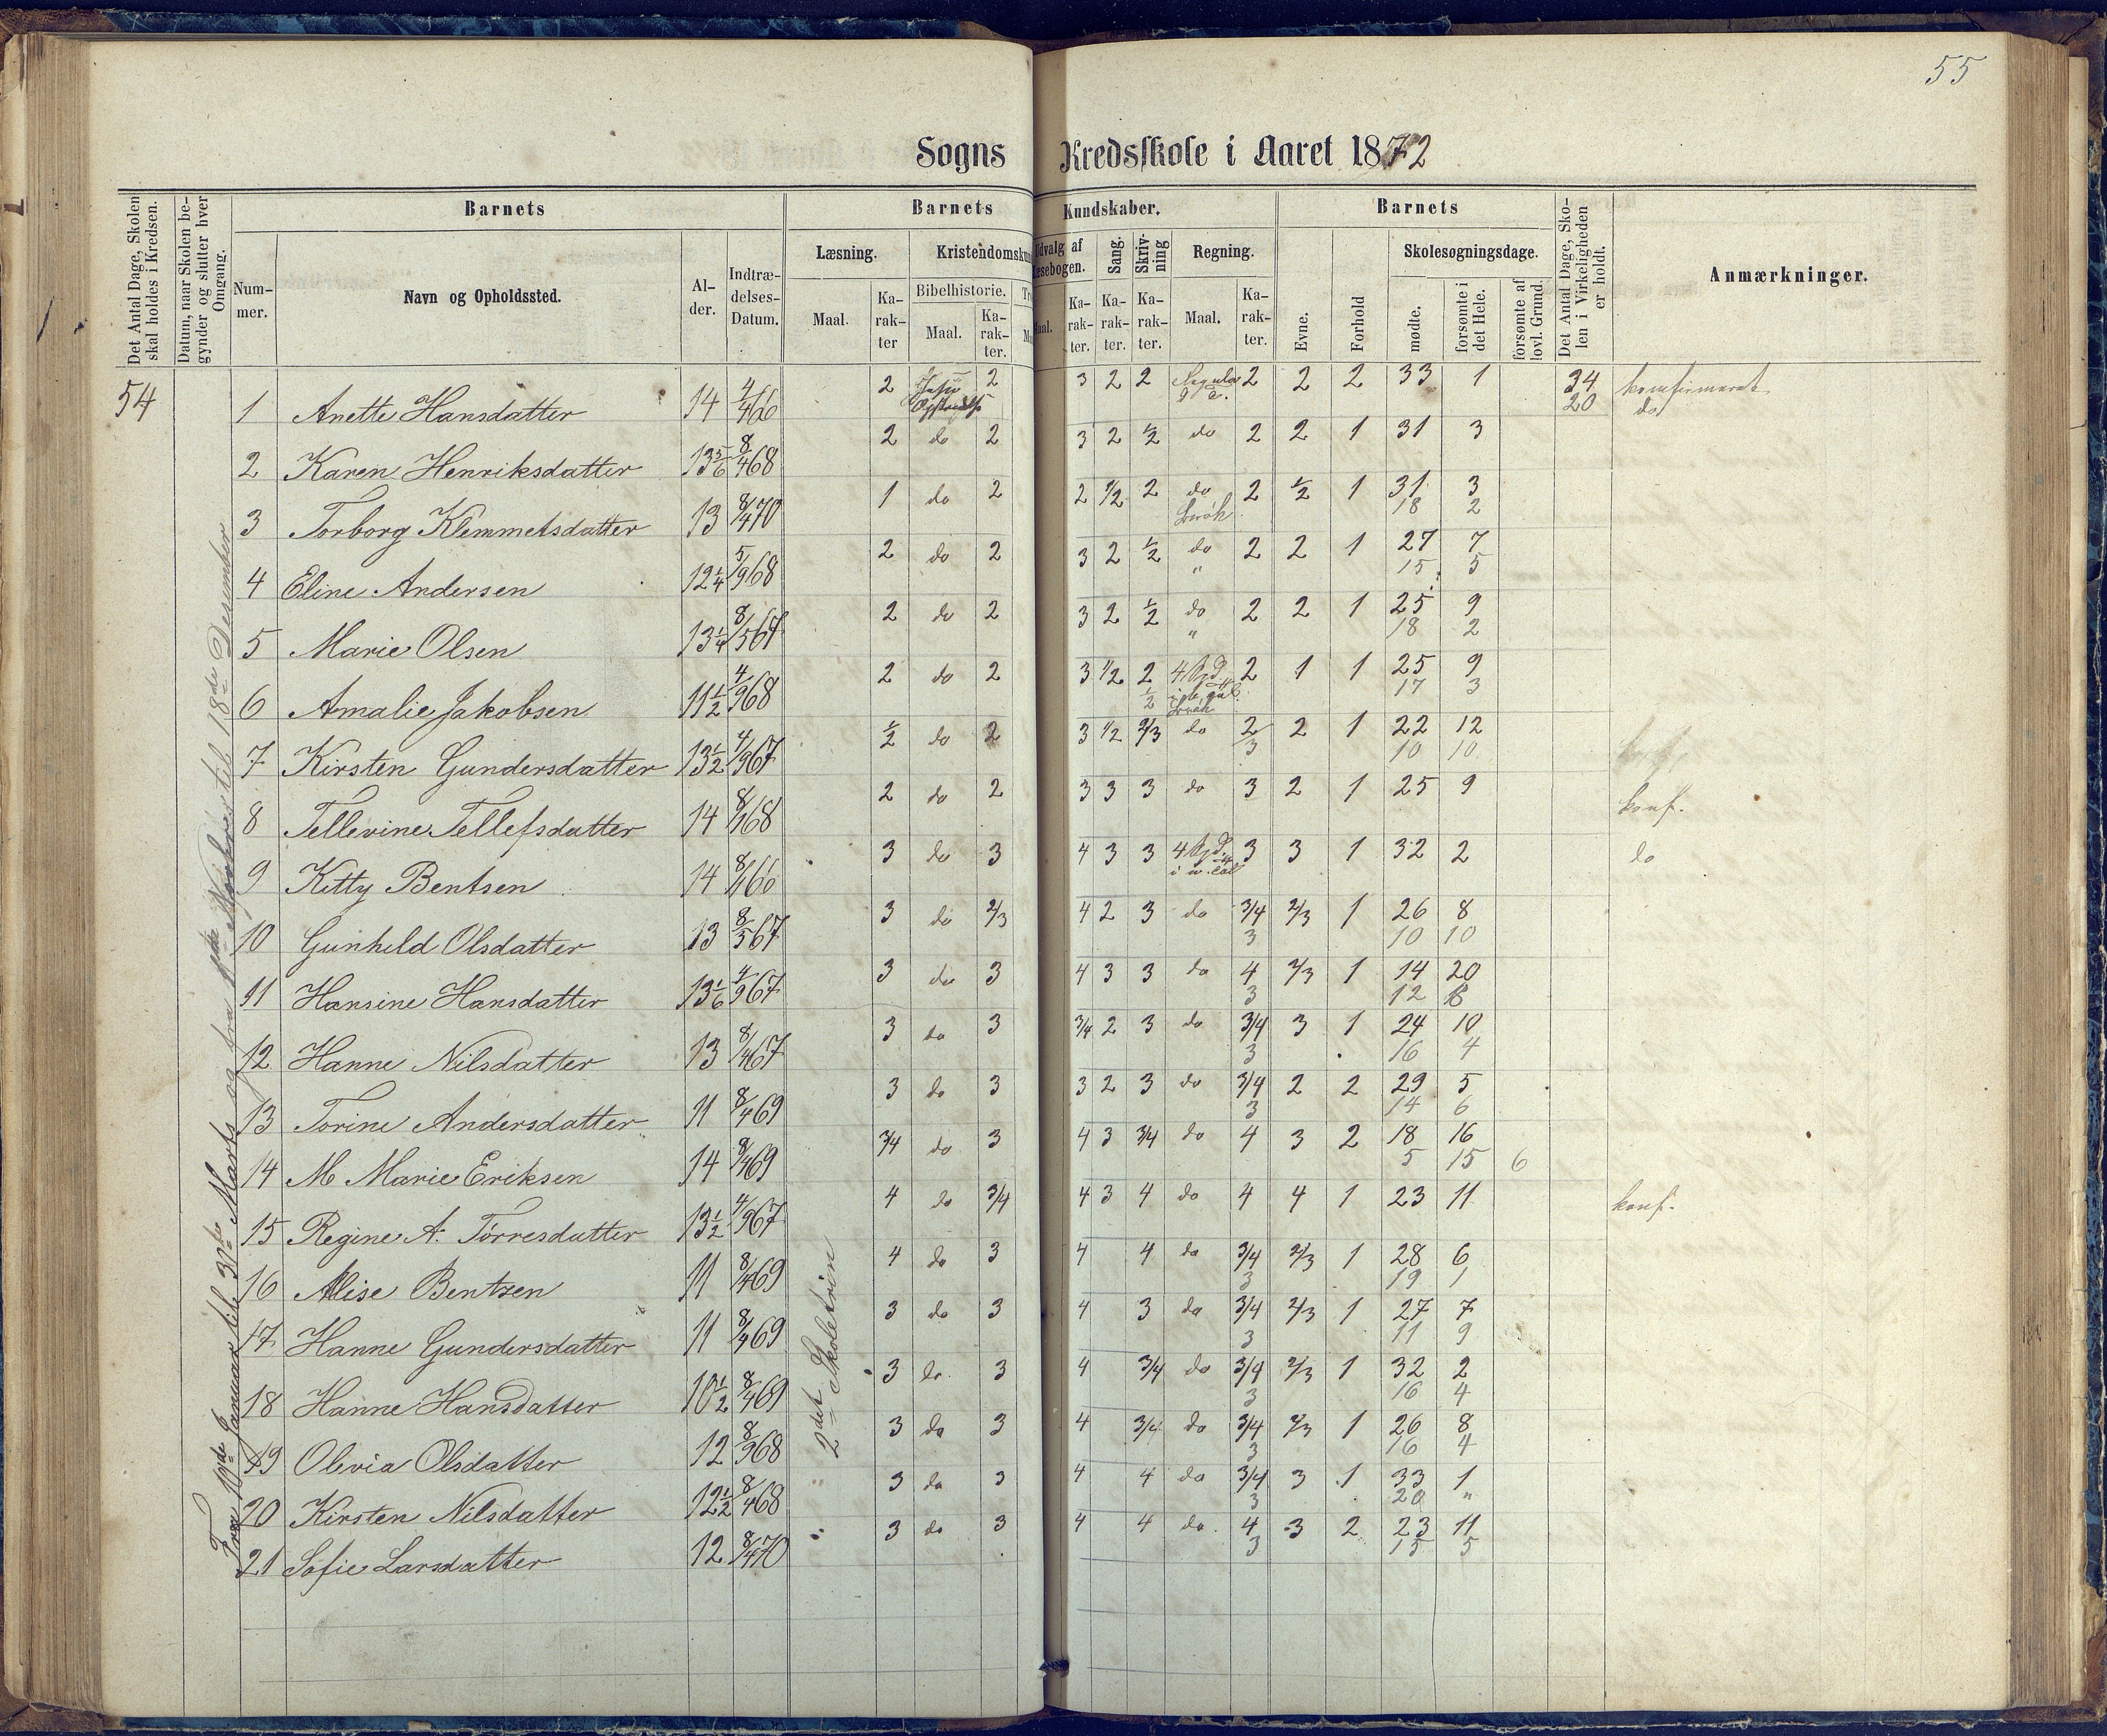 55
Sogns Kredsskole i Aaret 1872
Det Antal Dage, Skolen skal holdes i Kredsen.
Datum, naar Skolen begynder og slutter hver Omgang.
Barnets
Barnets Kundskaber.
Barnets
Det Antal Dage, Skolen i Virkeligheden er holdt.
Anmærkninger.
Nummer.
Navn og Opholdssted.
Alder.
Indtrædelses-Datum.
Læsning.
Kristendomskun
Udvalg af Læsebogen.
Sang.
Skrivning
Regning.
Evne.
Forhold
Skolesøgningsdage.
Maal.
Karakter
Bibelhistorie.
Maal.
Karakter.
Maal.
Karakter.
Karakter.
Karakter.
Maal.
Karakter.
mødte.
forsømte i det Hele.
forsømte af lovl. Grund.
Fra 10de Januar til 30te Marts og fra til 18de Desember
2det Skoletrin
54 1 Anette Hansdatter 14 4/4 66 2 Jesu 2 3 2 2 2 2 2 33 1 34 konfirmeret
20 do
2 Karen Henriksdatter 13 5/6 8/4 68 2 do 2 3 2 1/2 do 2 2 1 31 3
3 Torborg Klemmetsdatter 13 8/4 70 1 do 2 2 1/2 2 do 2 1/2 1 31 3
Brøk 18 2
4 Eline Andersen 12 1/4 5/9 68 2 do 2 3 2 1/2 do 2 2 1 27 7
" 15 5
5 Marie Olsen 13 1/4 8/5 67 2 do 2 3 2 1/2 do 2 2 1 25 9
" 18 2
6 Amalie Jakobsen 11 1/2 4/9 68 2 do 2 3 1/2 2 4 2 1 1 25 9
1/2 Brøk 17 3
7 Kirsten Gundersdatter 13 1/2 4/9 67 1/2 do 2 3 1/2 2/3 do 2/3 2 1 22 12
10 10
8 Tellevine Tellefsdatter 14 8/1 68 2 do 2 3 3 3 do 3 2 1 25 9 konf.
9 Kitty Bentsen 14 8/1 66 3 do 3 4 3 3 4 3 3 1 32 2 do
10 Gunhild Olsdatter 13 8/5 67 3 do 2/3 4 2 3 do 3/4 2/3 1 26 8
3 10 10
11 Hansine Hansdatter 13 1/6 4/9 67 3 do 3 4 3 3 do 4 2/3 1 14 20
3 12 8
12 Hanne Nilsdatter 13 8/4 67 3 do 3 3/4 2 3 do 3/4 3 1 24 10
3 16 4
13 Torine Andersdatter 11 8/4 69 3 do 3 3 2 3 do 3/4 2 2 29 5
3 14 6
14 M Marie Eriksen 14 8/4 69 3/4 do 3 4 3 3/4 do 4 3 2 18 16
5 15 6
15 Regine A. Tørresdatter 13 1/2 4/9 67 4 do 3/4 4 3 4 do 4 4 1 23 11 konf.
16 Alise Bentzen 11 8/4 69 4 do 3 4 4 do 3/4 2/3 1 28 6
3 19 1
17 Hanne Gundersdatter 11 8/4 69 3 do 3 4 3 do 3/4 2/3 1 27 7
3 11 9
18 Hanne Hansdatter 10 1/2 8/4 69 3 do 3 4 3/4 do 3/4 2/3 1 32 2
3 16 4
19 Olevia Olsdatter 12 8/9 68 3 do 3 4 3/4 do 3/4 2/3 1 26 8
3 16 4
20 Kirsten Nilsdatter 12 1/2 8/4 68 " 3 do 3 4 4 do 3/4 3 1 33 1
3 20 "
21 Sofie Larsdatter 12 8/4 70 " 3 do 3 4 4 do 4 3 2 23 11
3 15 5